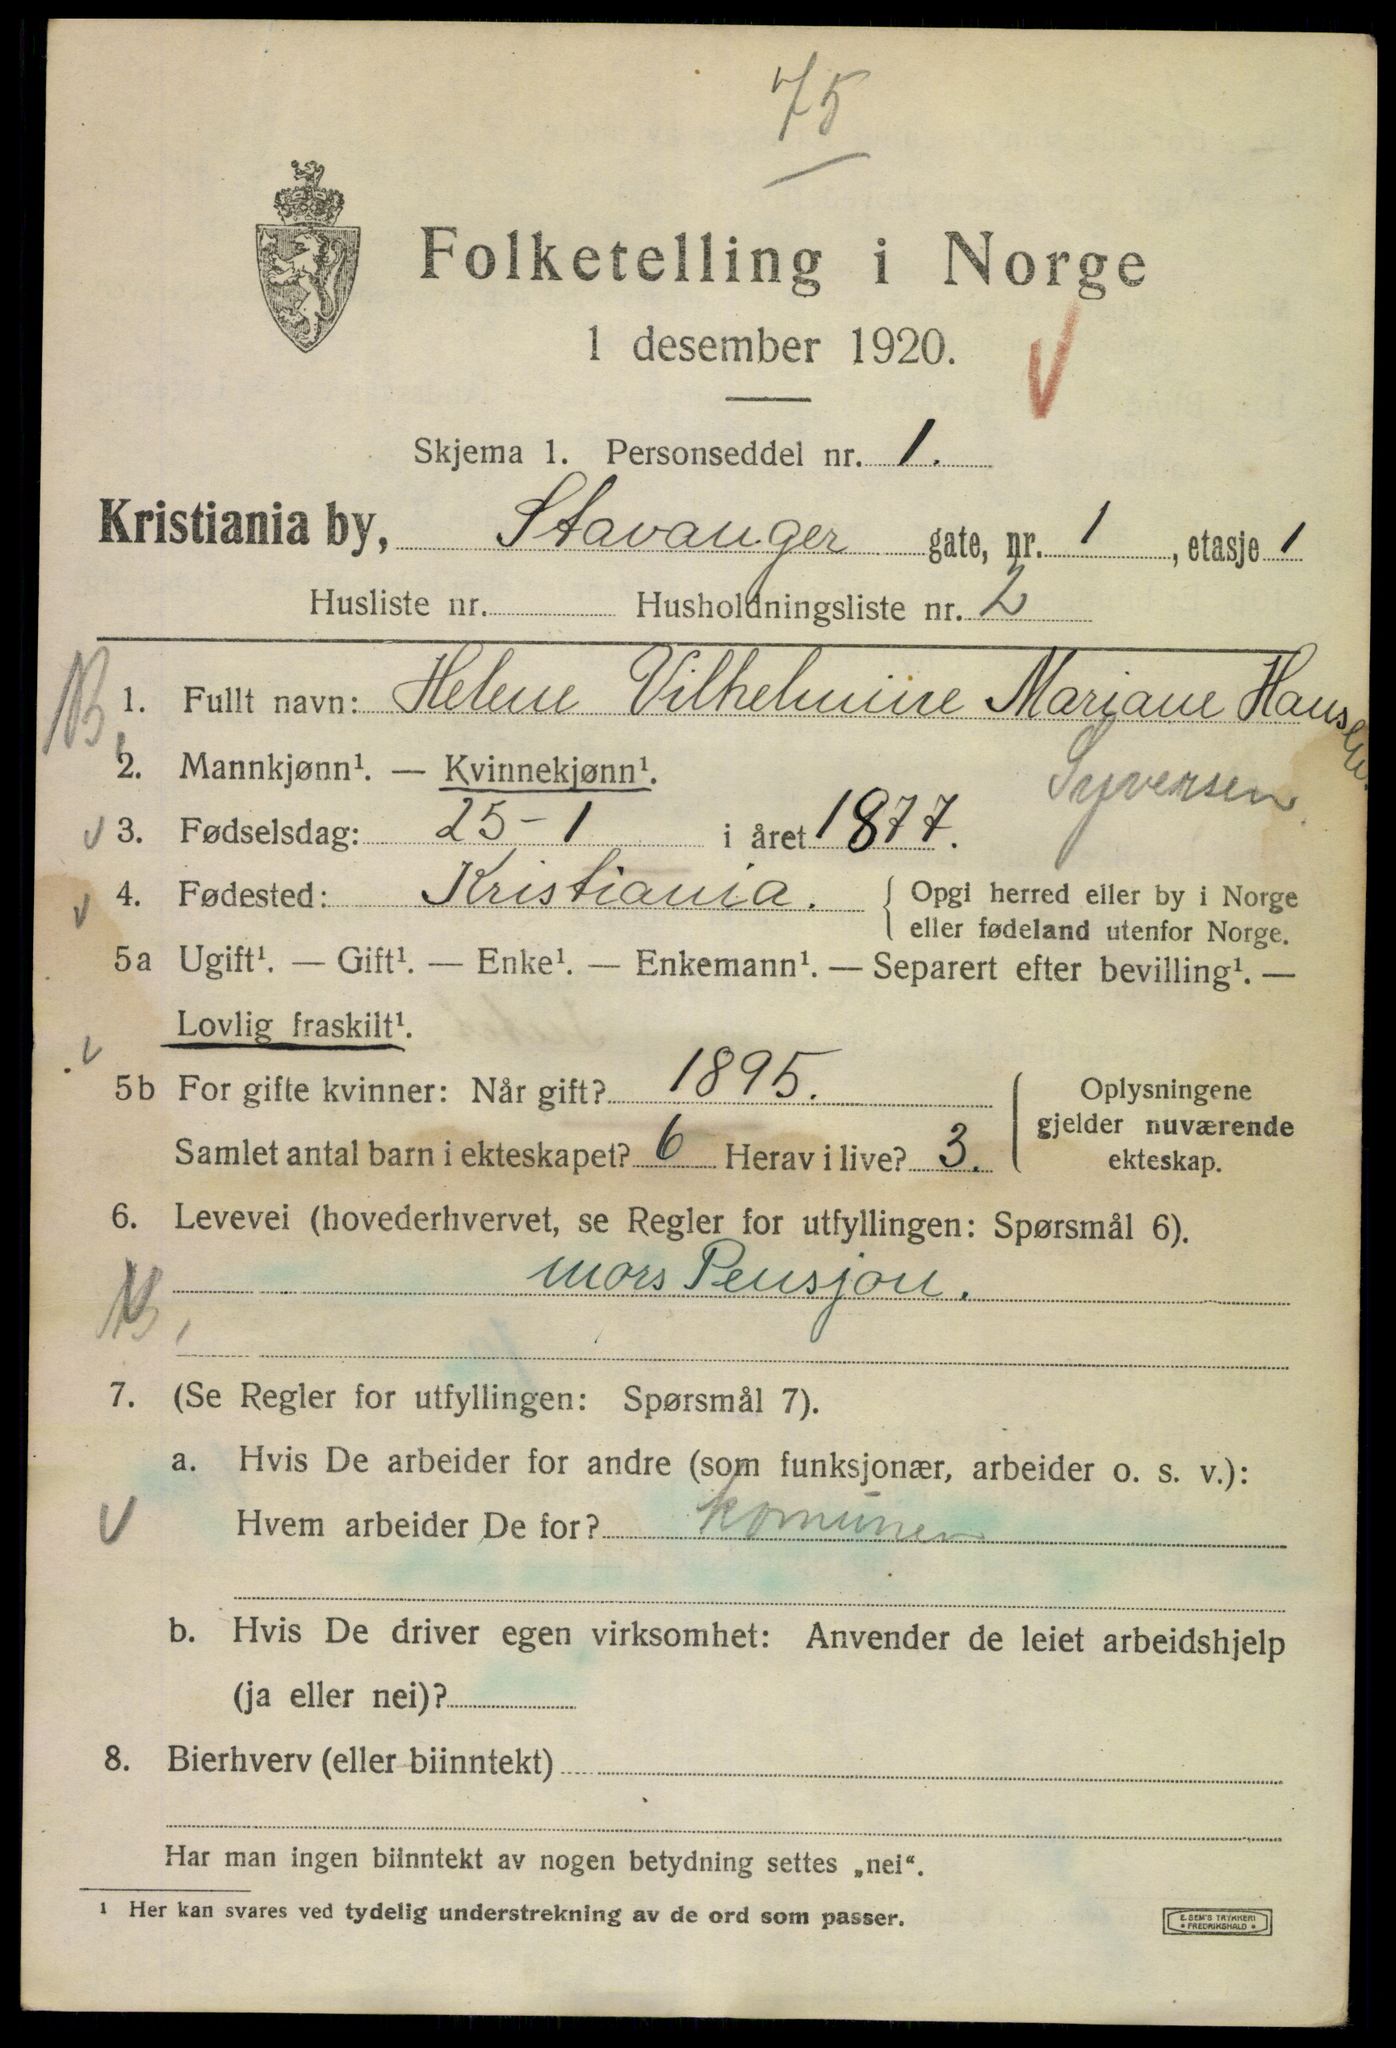 75
Folketelling i Norge
1 desember 1920.
Skjema 1. Personseddel nr. 1.
Kristiania by, Stavanger gate, nr. 1, etasje 1
Husliste nr. Husholdningsliste nr. 2
1. Fullt navn: Helene Vilhelmine Mariane Hansen
2. Mannkjønn¹. — Kvinnekjønn¹. Syversen
3. Fødselsdag: 25-1 i året 1877.
4. Fødested: Kristiania. { Opgi herred eller by i Norge
eller fødeland utenfor Norge.
5a Ugift¹. — Gift¹. — Enke¹. — Enkemann¹. — Separert efter bevilling¹. —
Lovlig fraskilt¹.
5b For gifte kvinner: Når gift? 1895.
Samlet antal barn i ekteskapet? 6 Herav i live? 3.
Oplysningene
gjelder nuværende
ekteskap.
6. Levevei (hovederhvervet, se Regler for utfyllingen: Spørsmål 6).
mors Pensjon.
7. (Se Regler for utfyllingen: Spørsmål 7).
a. Hvis De arbeider for andre (som funksjonær, arbeider o. s. v.):
Hvem arbeider De for? komunen
b. Hvis De driver egen virksomhet: Anvender de leiet arbeidshjelp
(ja eller nei)?
8. Bierhverv (eller biinntekt)
Har man ingen biinntekt av nogen betydning settes „nei“.
¹ Her kan svares ved tydelig understrekning av de ord som passer.
E. SEM'S TRYKKERI
* FREDRIKSHALD *